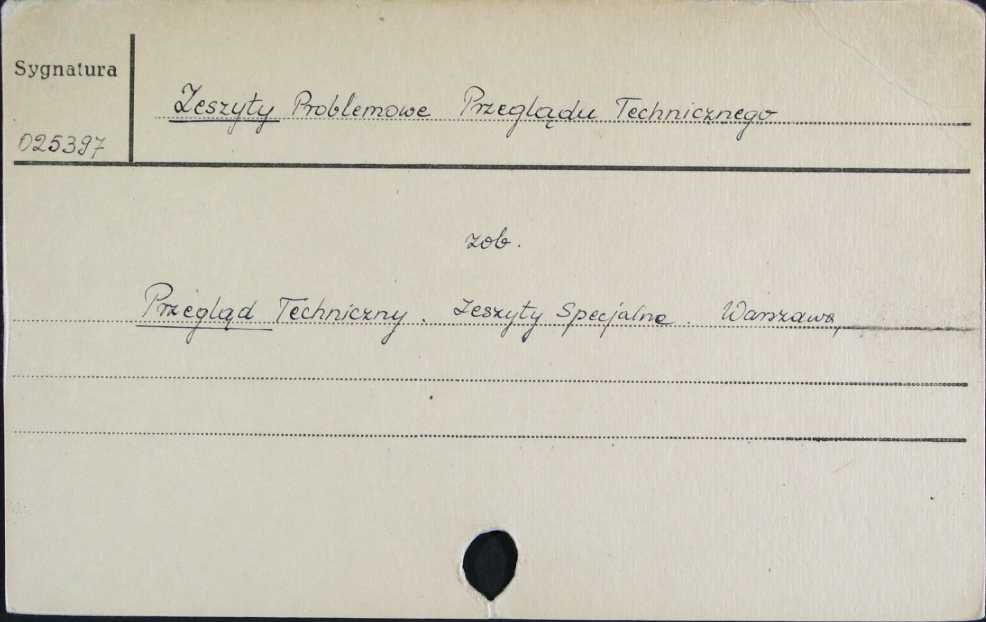 Sygnatura
Zeszyty Problemowe Przeglądu Technicznego
025397
zob.
Przegląd Techniczny. Zeszyty Specjalne. Warszawa,